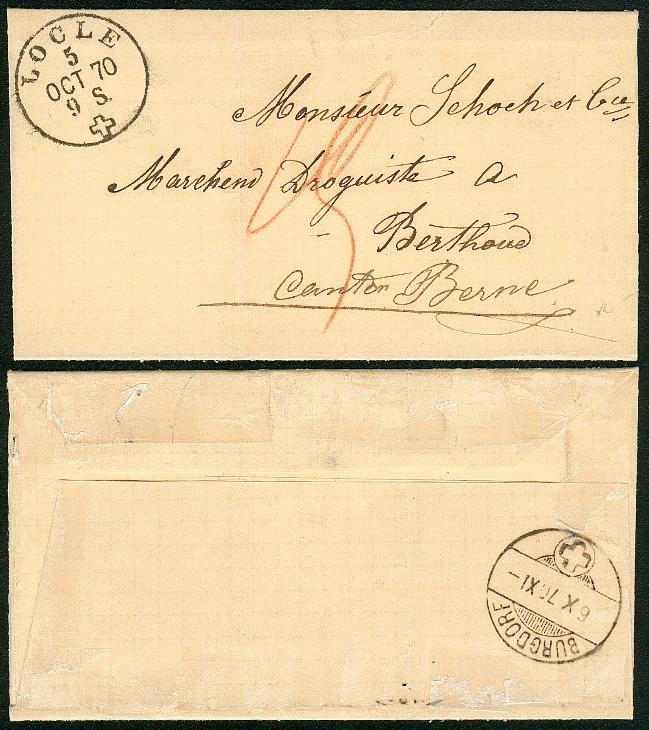 LOCLE
5
OCT 70
9 S
Monsieur Schoch et Cie
Marchend Droguiste a
Berthoud
Canton Berne
6 X 70 XI-
BURGDORF